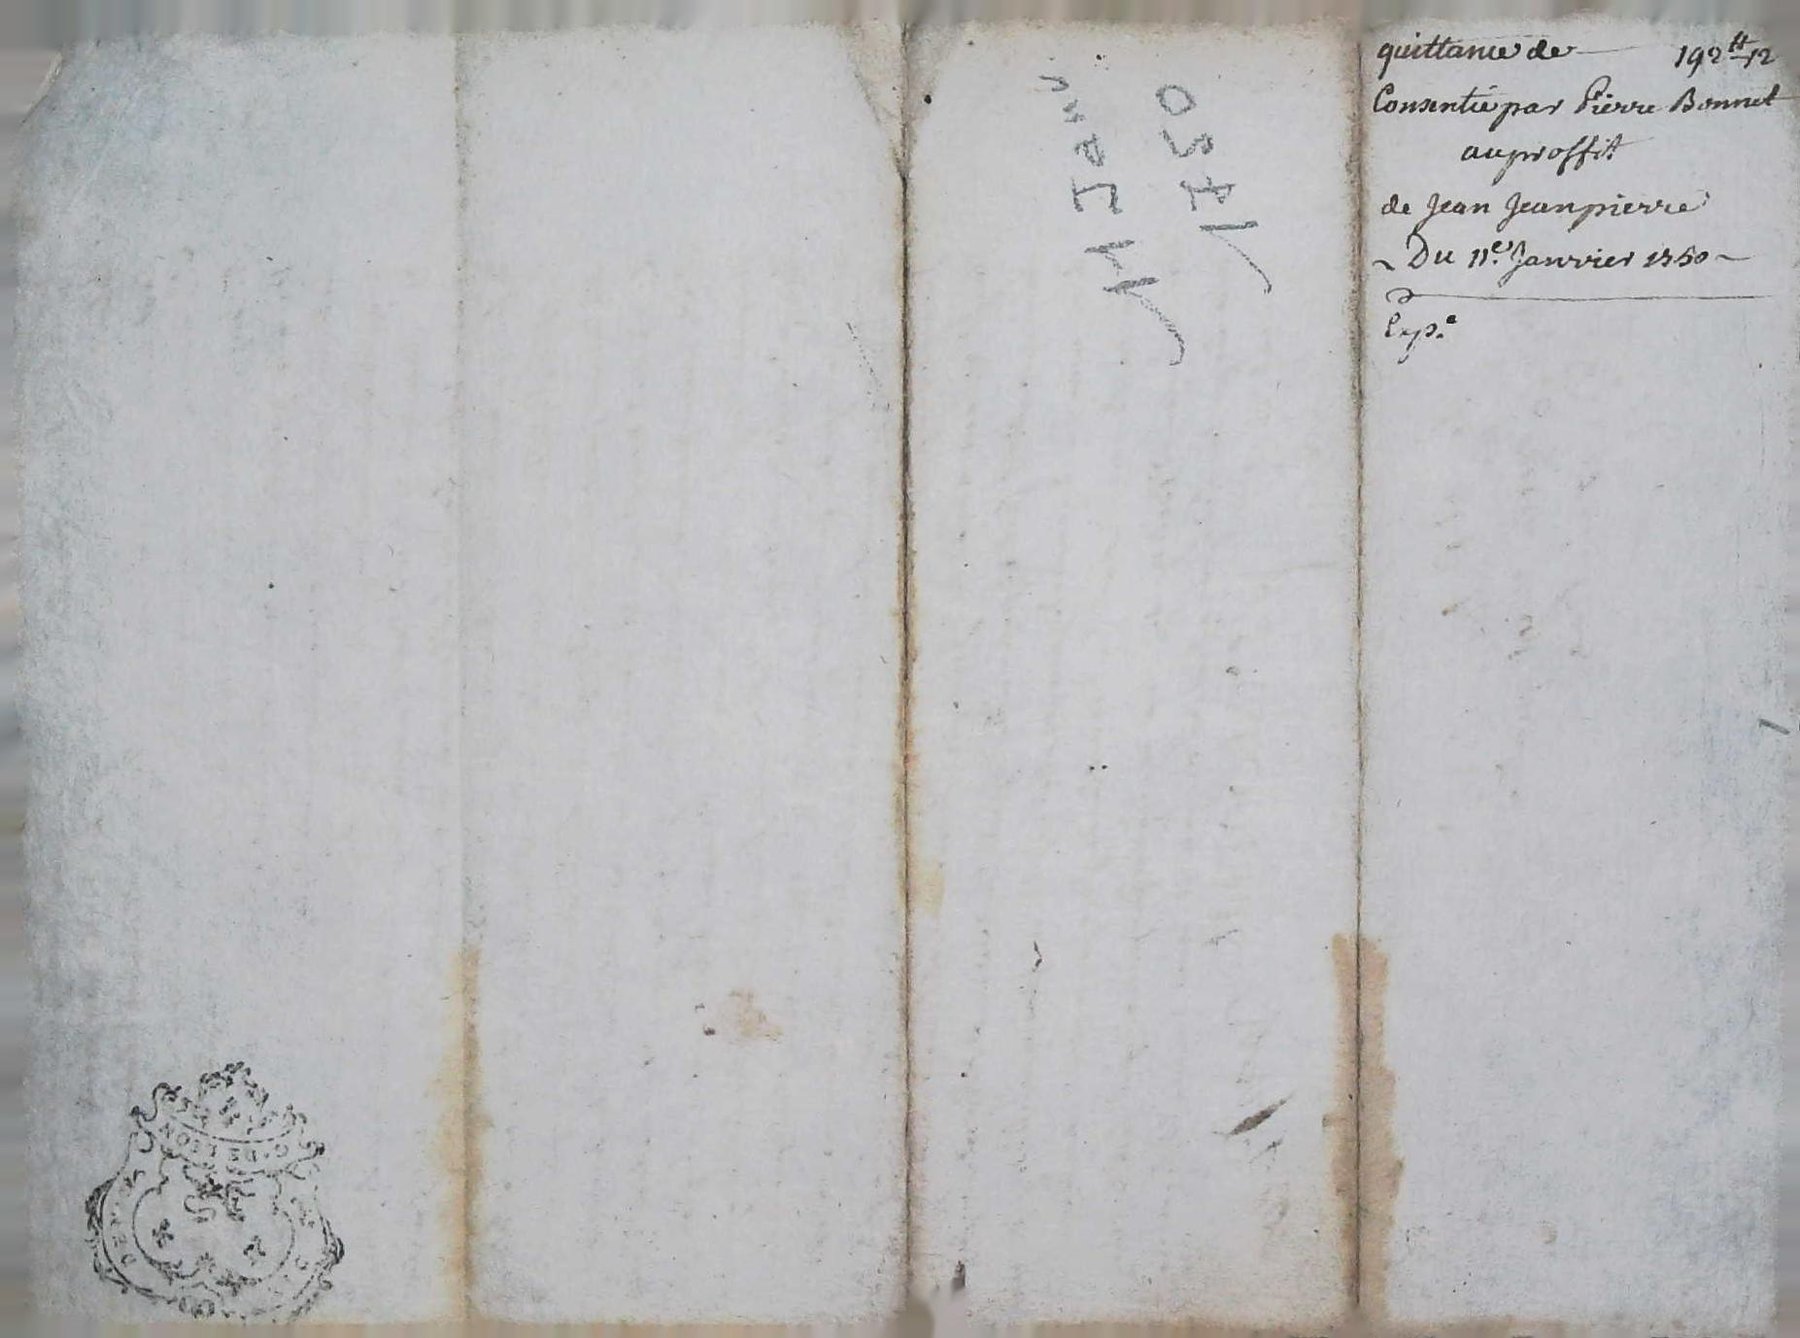 quittance de 192 ₶ 12
Consentie par Pierre Bonnet
au proffit
de Jean Jeanpierre
~ Du 11.e Janvier 1750 ~
Exp.e
1750
11 Janv